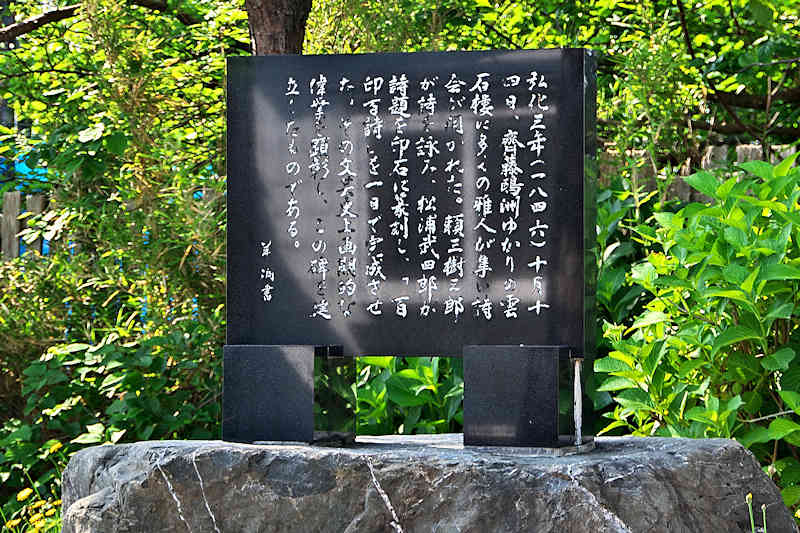 弘化三年(一八四六)十月十
四日、齊藤鴎洲ゆかりの雲
石楼に多くの雅人が集い詩
会が開かれた。頼三樹三郎
が詩を詠み、松浦武四郎が
詩題を印石に篆刻し、「百
印百詩」を一日で完成させ
た。その文芸史上画期的な
偉業を顕彰し、この碑を建
立したものである。
書